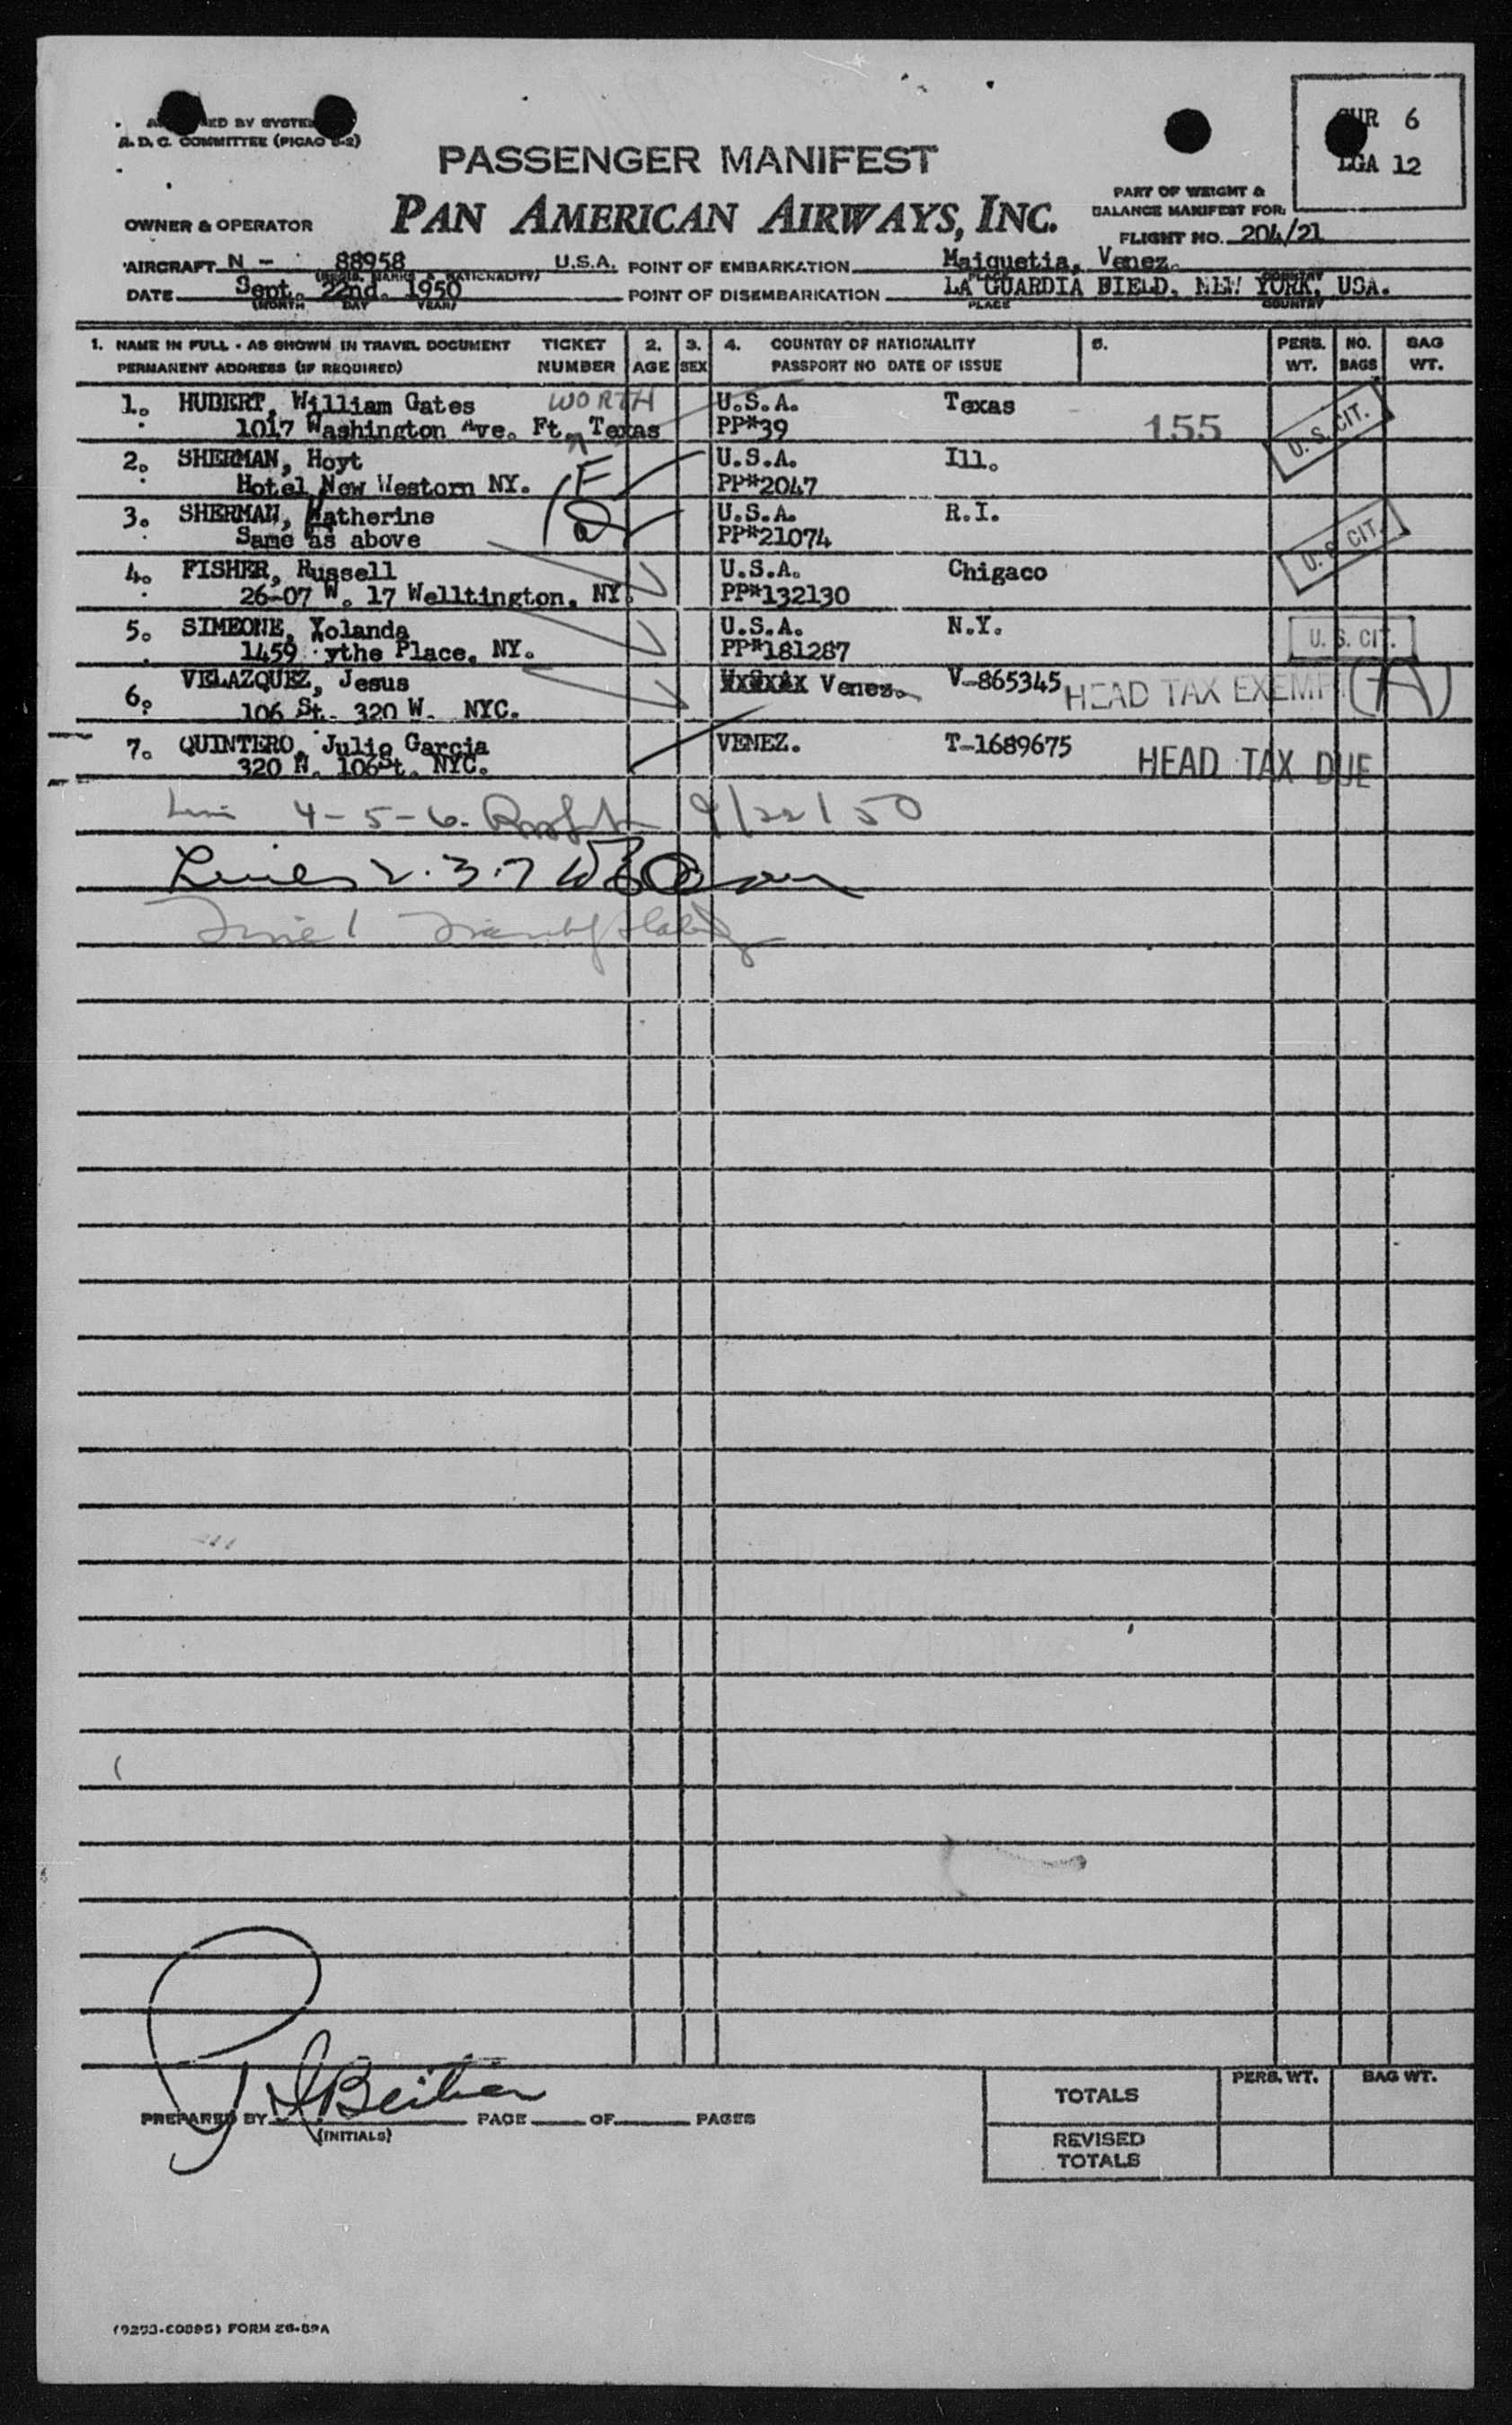 ED BY SYSTE
A. D. C. COMMITTEE (PICAO 5-2)
PASSENGER MANIFEST
PAN AMERICAN AIRWAYS, INC.
OWNER & OPERATOR
CUR 6
LGA 12
PART OF WEIGHT &
BALANCE MANIFEST FOR:
FLIGHT NO. 204/21
AIRCRAFT N - 88958 U.S.A. POINT OF EMBARKATION Maiquetia, Venez.
(REGIS. MARKS & NATIONALITY) PLACE COUNTRY
DATE Sept. 22nd. 1950 POINT OF DISEMBARKATION LA GUARDIA FIELD, NEW YORK, USA.
(MONTH DAY YEAR) PLACE COUNTRY
1. NAME IN FULL - AS SHOWN IN TRAVEL DOCUMENT TICKET 2. 3. 4. COUNTRY OF NATIONALITY 5. PERS. NO. BAG
PERMANENT ADDRESS (IF REQUIRED) NUMBER AGE SEX PASSPORT NO DATE OF ISSUE WT. BAGS WT.
1. HUBERT, William Gates WORTH U.S.A. Texas
1017 Washington Ave. Ft. Texas PP#39 155 U. S. CIT.
2. SHERMAN, Hoyt U.S.A. Ill.
Hotel New Western NY. PP#2047
3. SHERMAN, Katherine U.S.A. R.I.
Same as above PP#21074 U. S. CIT.
4. FISHER, Russell U.S.A. Chigaco
26-07 W. 17 Welltington, NY. PP#132130
5. SIMEONE, Yolanda U.S.A. N.Y.
1459 ythe Place, NY. PP#181287 U. S. CIT.
6. VELAZQUEZ, Jesus XXXXXX Venez. V-865345 HEAD TAX EXEMP (A)
106 St. 320 W. NYC.
7. QUINTERO, Julio Garcia VENEZ. T-1689675 HEAD TAX DUE
320 W. 106St. NYC.
4-5-6. 9/22/50
Lines 2.3.7
Line 1
PREPARED BY PAGE OF PAGES
(INITIALS)
PERS. WT. BAG WT.
TOTALS
REVISED
TOTALS
FORM 26-89A